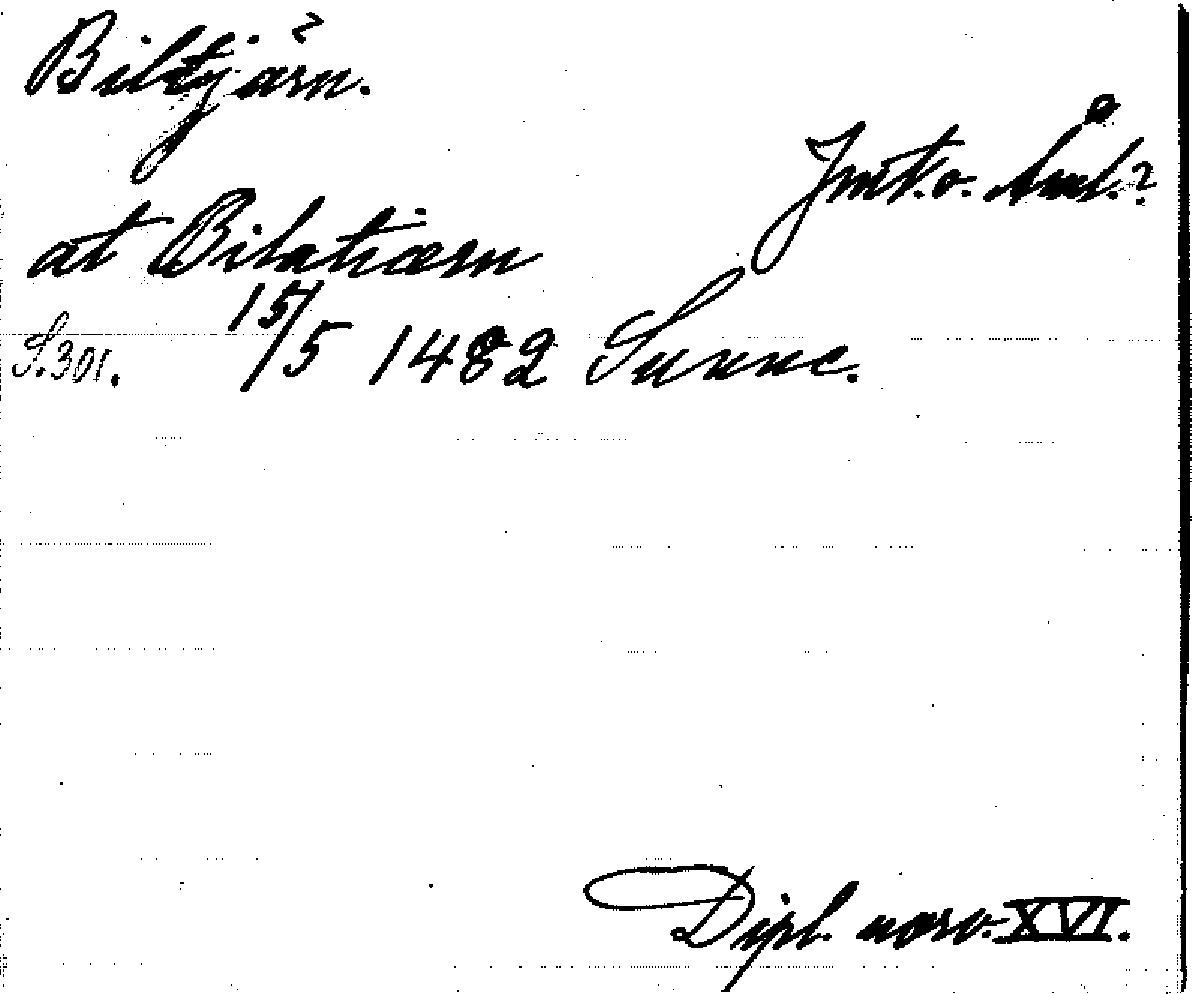 Biltjärn. ?
Jmt. o. Ånl.?
at Bilatiærn
S. 301. 15/5 1482 Sunne.
Dipl. norv. XVI.